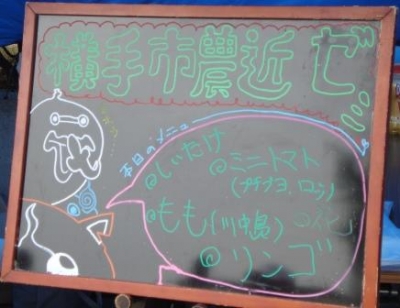 横手市農近ゼミ
本日のメニュー
@しいたけ
@ミニトマト
(プチプヨ、ロッソ)
@もも(川中島)
@リンゴ